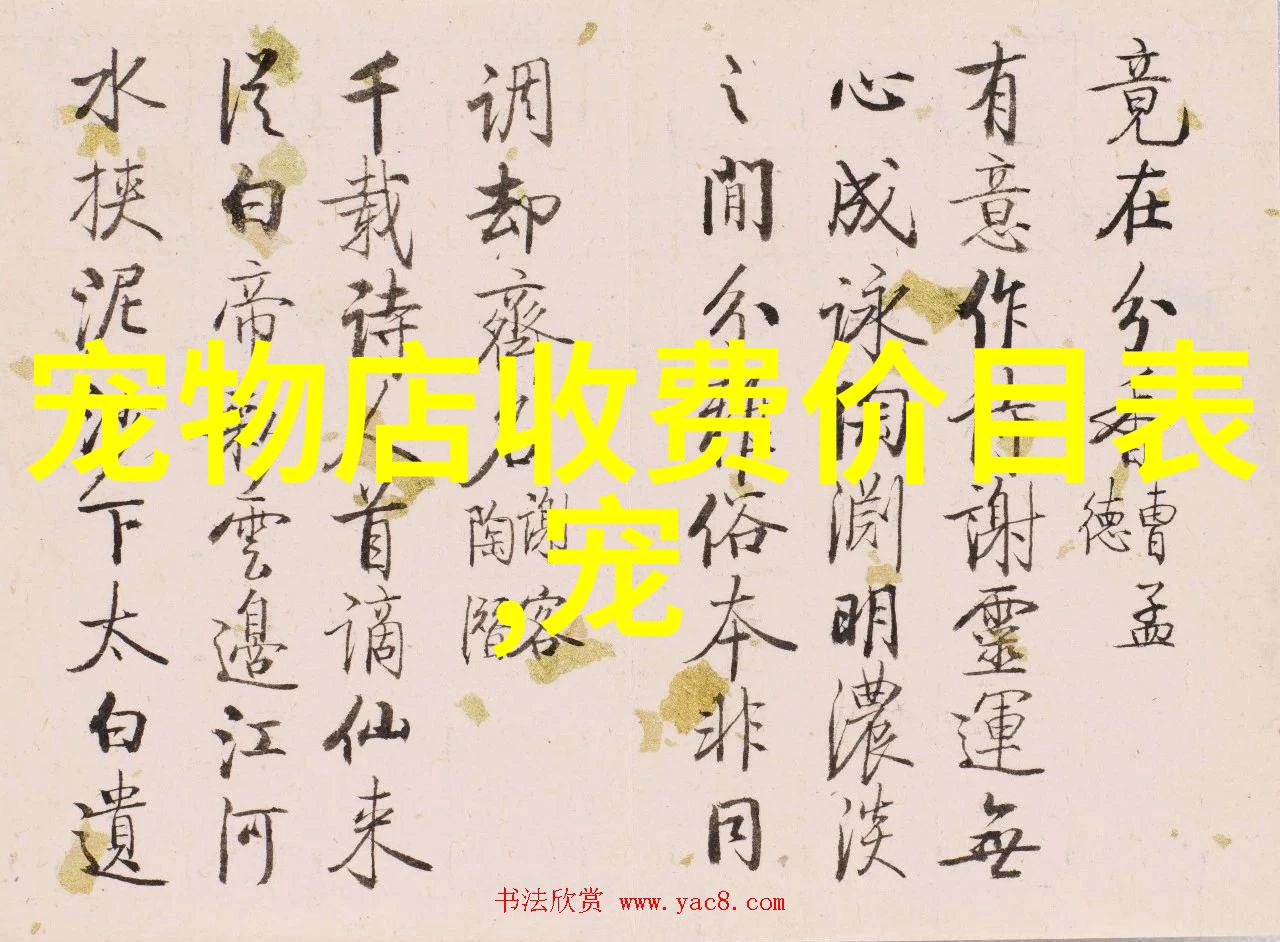 宠物店收费价目表
,宠
竟在分香曹孟德
有意作诗謝靈運無
心成詠陶淵明濃淡
之間分雅俗本非同
调却齊名謝客陶潛
千載诗人首謫仙来
從白帝彩雲邊江河
水挾泥沙下太白遺
书法欣赏 www.yac8.com